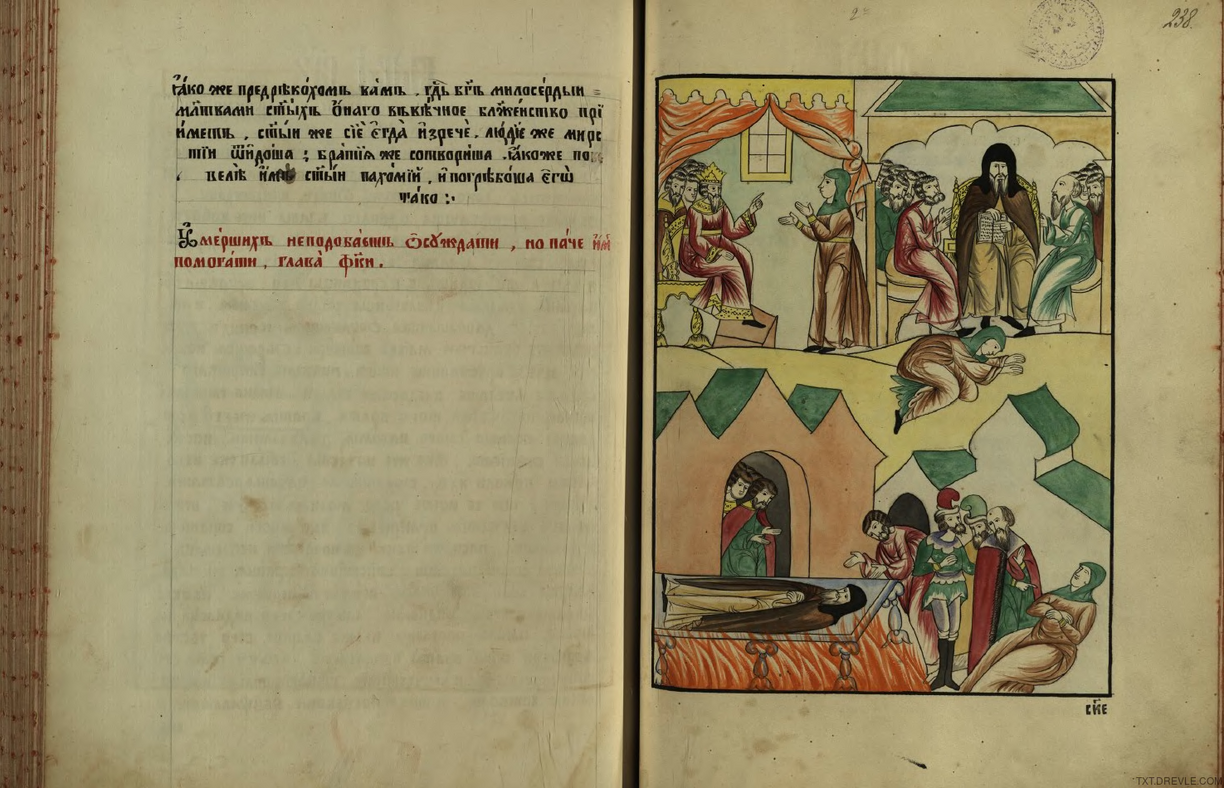 ꙗ҆́ко же предрѣко́хомъ ва́мъ . гд҇ь бг҃ъ милосе́рдыи =
мл҃твами ст҃ы́хъ ѻ҆́наго въвѣ́чное бл҃же́нство прї
и́метъ , ст҃ы́и же сїѐ є҆гда̀ и҆зречѐ . лю́дїе же мирс
тїи ѿидо́ша ; бра́тїѧ же сотвори́ша . ꙗ҆́коже по
велѣ̀ и҆̀мъ ст҃ы́и пахо́мїй , и҆погрѣбо́ша є҆гѡ̀
та́ко :·
Оу҆ме́ршихъ неподоба́етъ ѡ҆сужда́ти , но па́че и҆̀мъ
помога́ти , глава̀ ф҃ки .
2
238.
с҃ке
TXT.DREVLE.COM